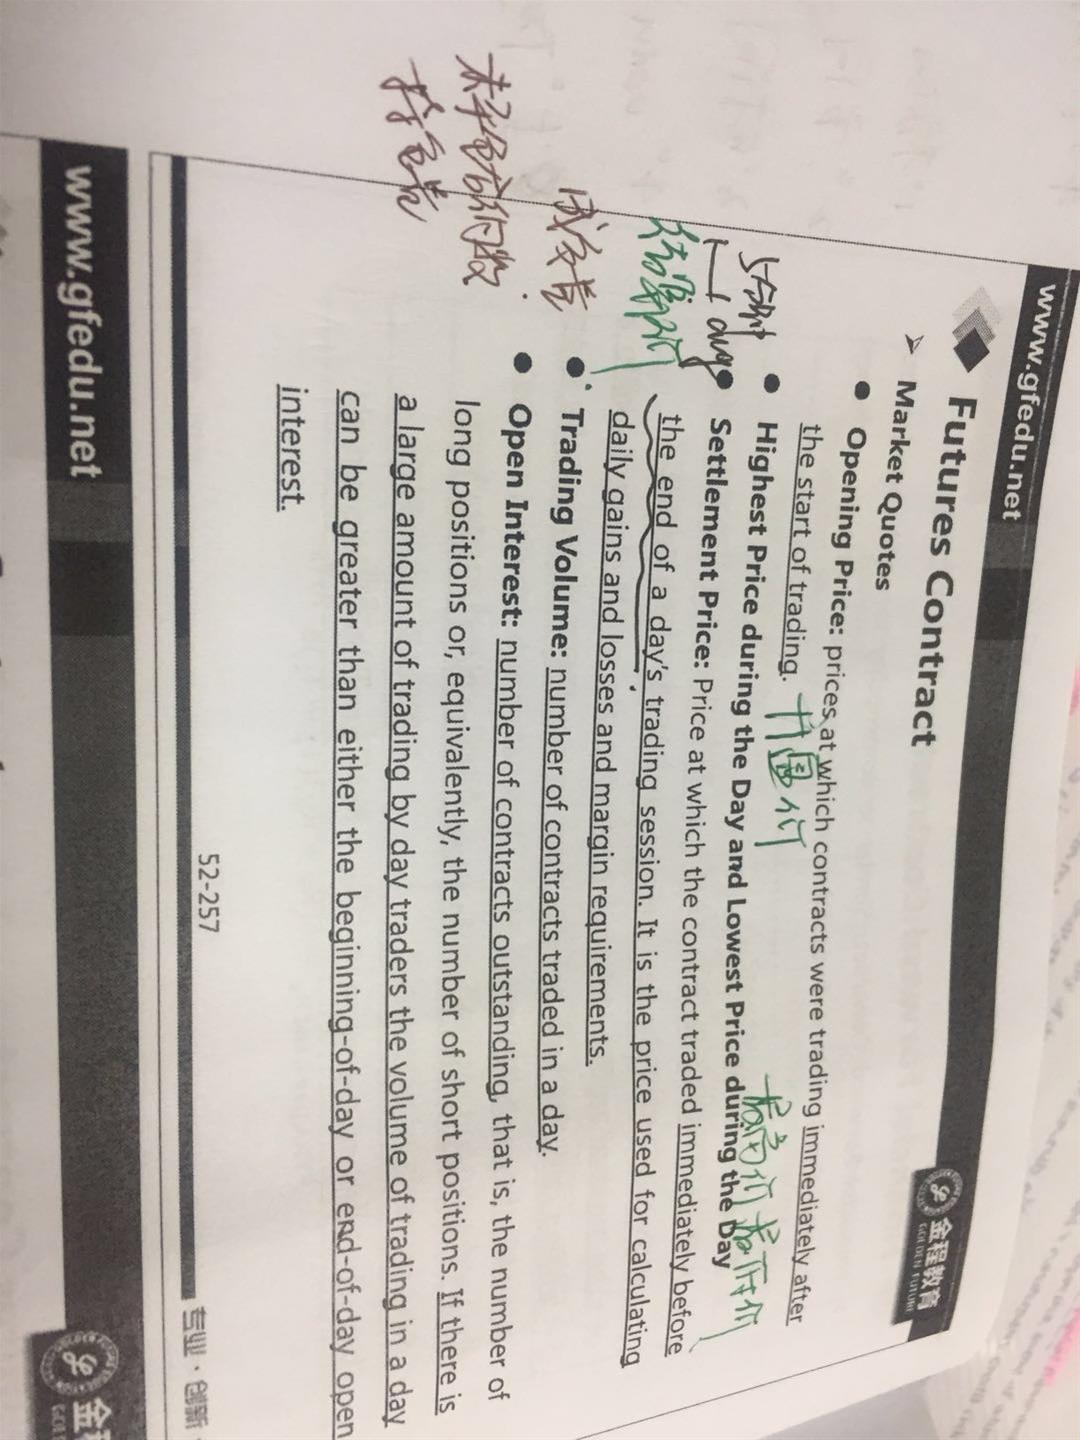 www.gfedu.net
Futures Contract
金程教育
GOLDEN FUTURE
➢ Market Quotes
● Opening Price: prices at which contracts were trading immediately after
the start of trading.
开盘价
最高价 最低价
● Highest Price during the Day and Lowest Price during the Day
day
● Settlement Price: Price at which the contract traded immediately before
the end of a day's trading session. It is the price used for calculating
daily gains and losses and margin requirements.
成交量
● Trading Volume: number of contracts traded in a day.
● Open Interest: number of contracts outstanding, that is, the number of
long positions or, equivalently, the number of short positions. If there is
a large amount of trading by day traders the volume of trading in a day
can be greater than either the beginning-of-day or end-of-day open
interest.
持仓量
52-257
专业·创新
www.gfedu.net
金